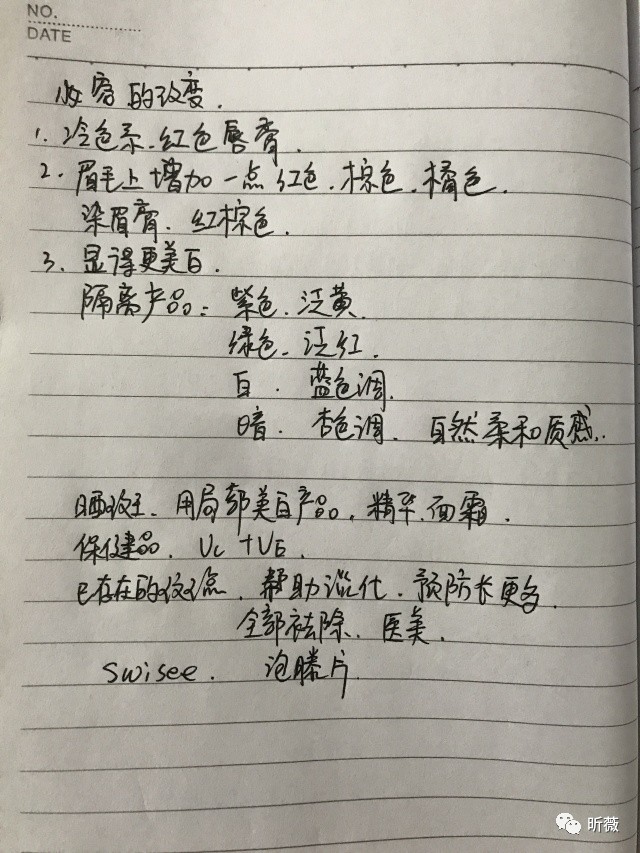 NO.
DATE
妆容的改变.
1. 冷色系.红色唇膏.
2. 眉毛上增加一点红色.棕色.橘色.
染眉膏.红棕色.
3. 显得更美白.
隔离产品: 紫色.泛黄.
绿色.泛红.
白.蓝色调.
暗.杏色调.自然柔和质感.
晒斑.用局部美白产品.精华.面霜.
保健品.VC+VE.
已存在的斑点.帮助淡化.预防长更多.
全部祛除.医美.
swisee. 泡腾片.
昕薇